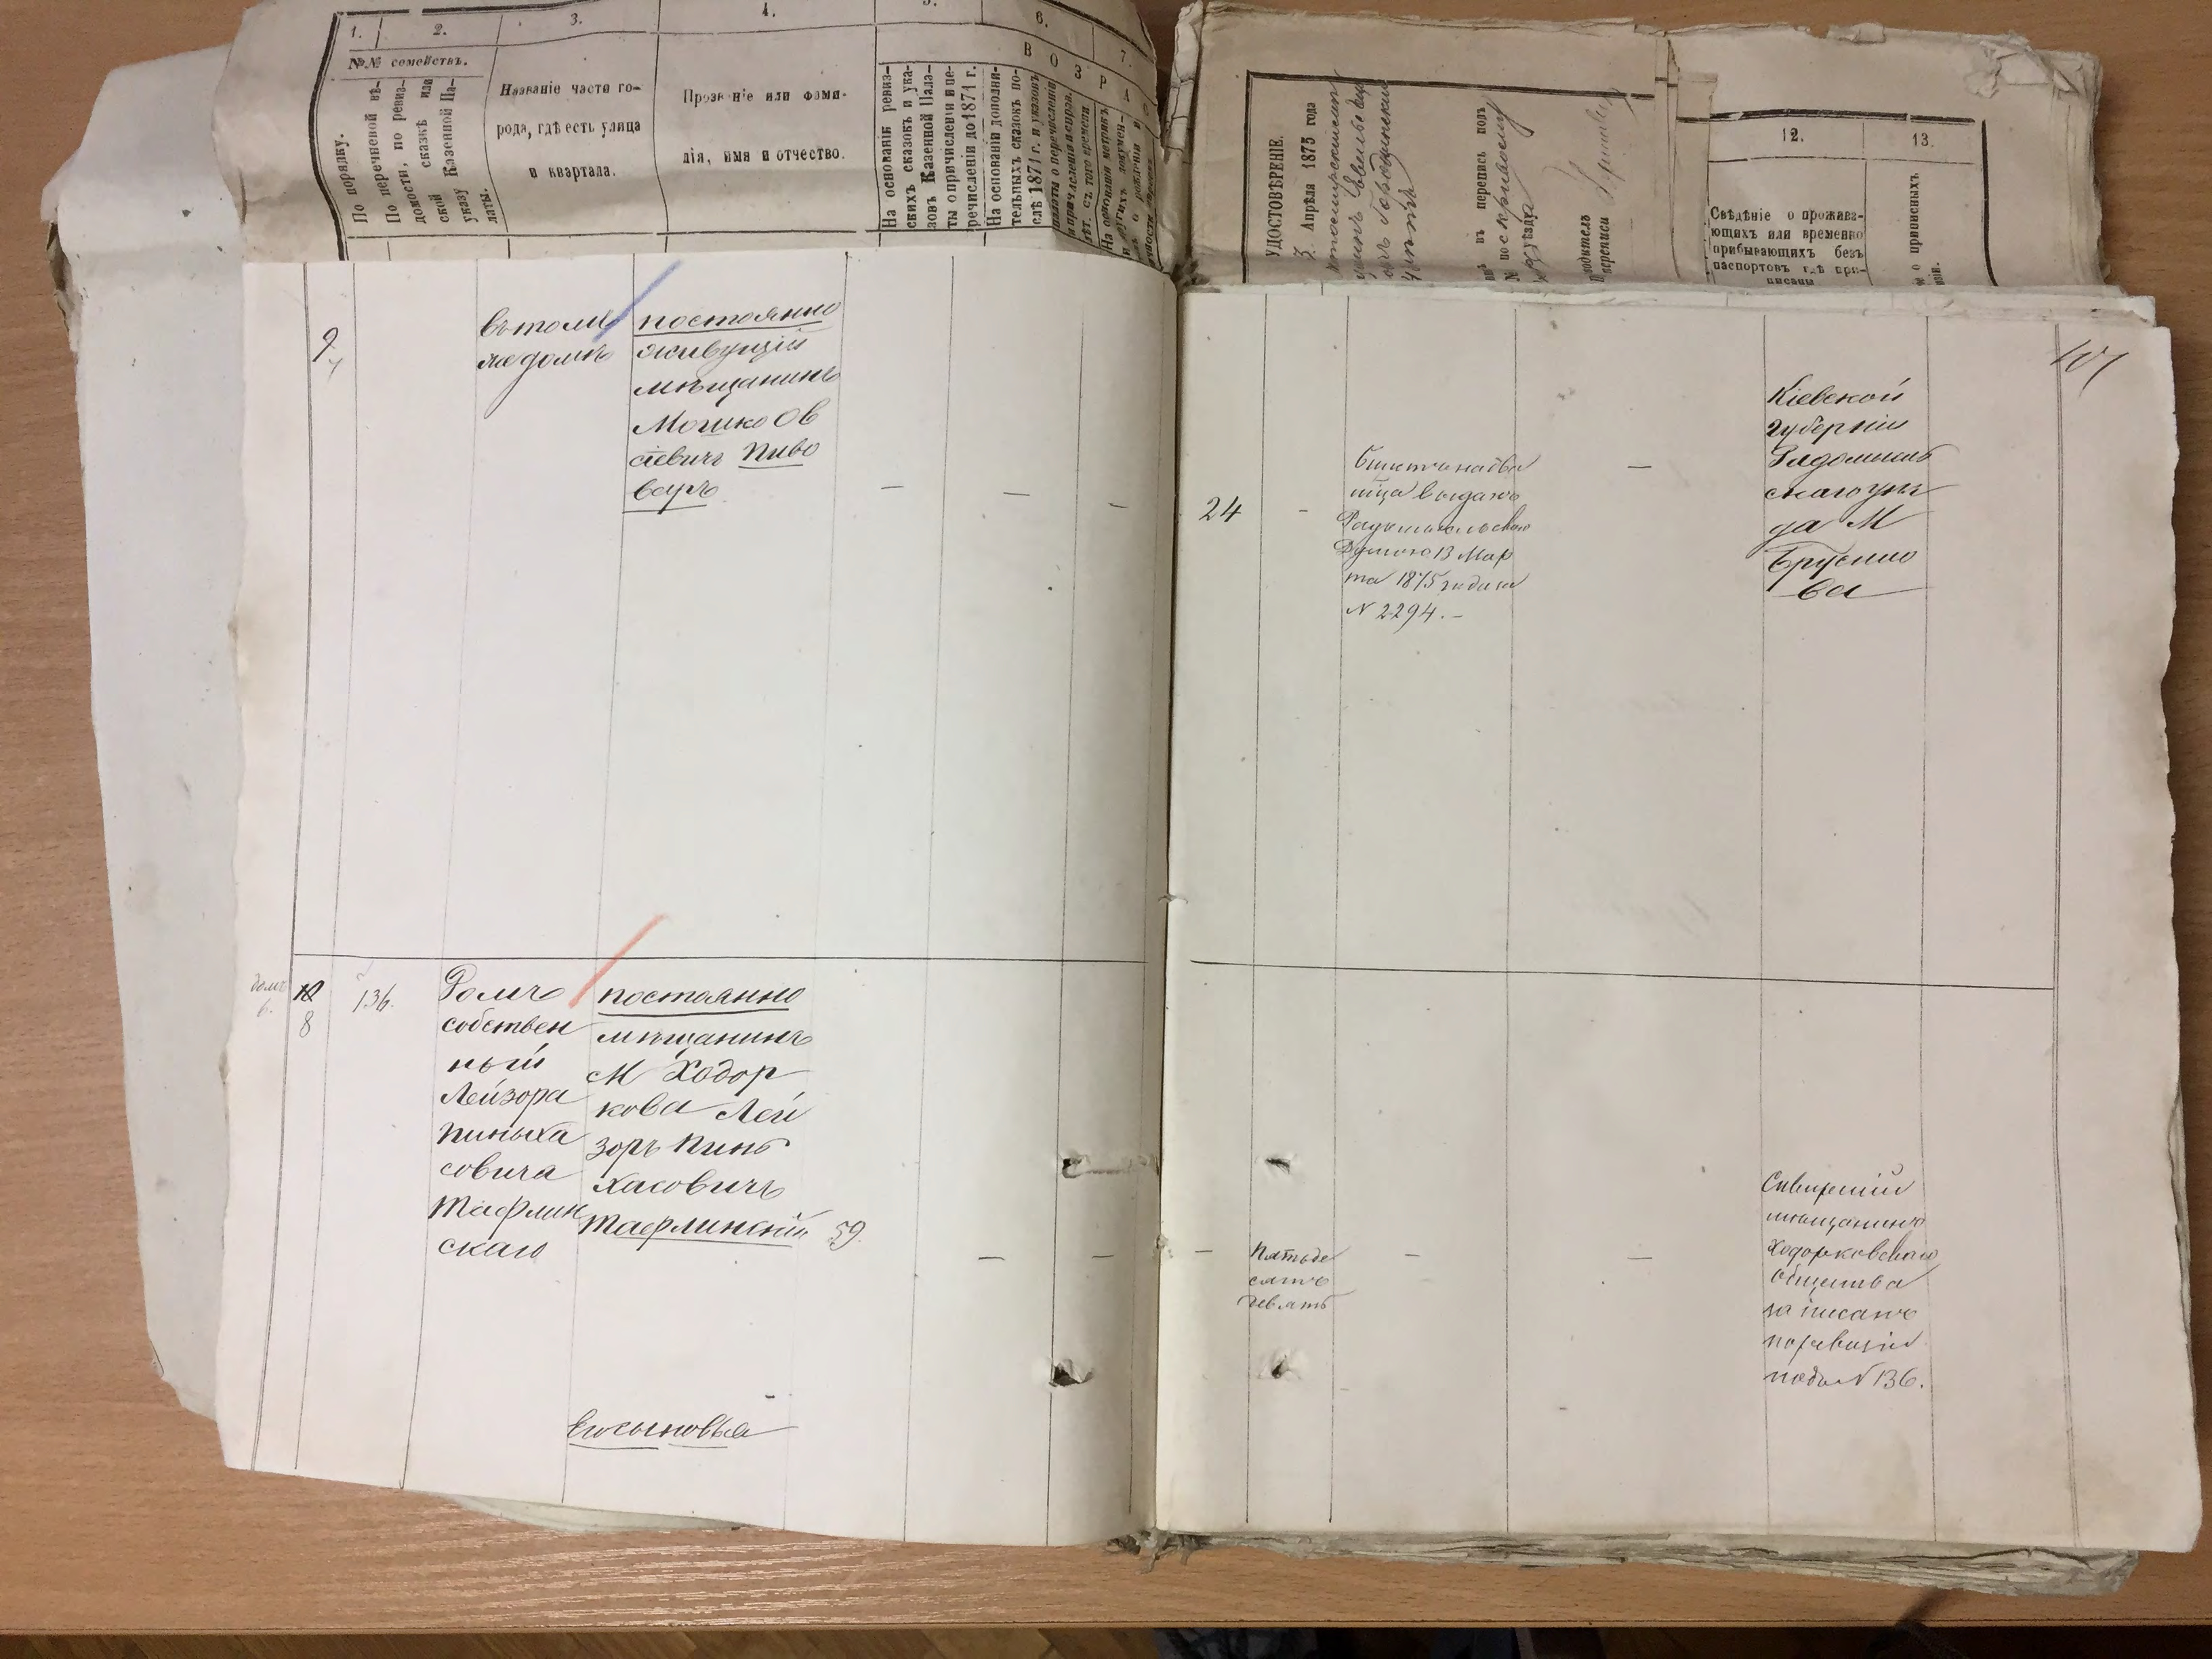 1.
2.
3.
4.
5.
6.
7.
№№ семействъ.
По порядку.
По перечневой вѣ-
домости, по ревиз-
ской сказкѣ или
указу Казенной Па-
латы.
Названіе части го-
рода, гдѣ есть улица
и квартала.
Прозваніе или фами-
лія, имя и отчество.
В О З Р А
На основаніи ревиз-
скихъ сказокъ и ука-
зовъ Казенной Пала-
ты о причисленіи и пе-
речисленіи до 1871 г.
На основаніи дополни-
тельныхъ сказокъ по-
слѣ 1871 г. и указовъ
палаты о перечисленіи
На основаніи метрикъ
и другихъ докумен-
УДОСТОВѢРЕНІЕ.
3. Апрѣля 1875 года
въ перепись подъ
переписи
12.
13.
Свѣдѣніе о прожива-
ющихъ или временно
прибывающихъ безъ
паспортовъ гдѣ при-
писаны
о приписныхъ
9
въ томъ
же домѣ
постоянно
живущій
мѣщанинъ
Мошко Ов
сіевичъ Пиво
варъ
—
—
—
107
24
-
Билетъ на два
выданъ
Радомысльскою
Думою 13 Мар
та 1875 года за
N 2294.-
—
Кіевской
губерніи
Радомысль
скаго уѣз
да М
Брусило
ва
10
8
136.
Домъ
собствен
ный
Лейзора
Пиньха
совича
Тафлин
скаго
постоянно
мѣщанинъ
М Ходор
кова Лей
зоръ Пинь
хасовичъ
Тафлинскій 59.
—
—
—
Пятьде
сятъ
девять
—
—
Сквирскій
мѣщанинъ
Ходорковскаго
общества
записанъ
по ревизіи
подъ N 136.
Его сыновья